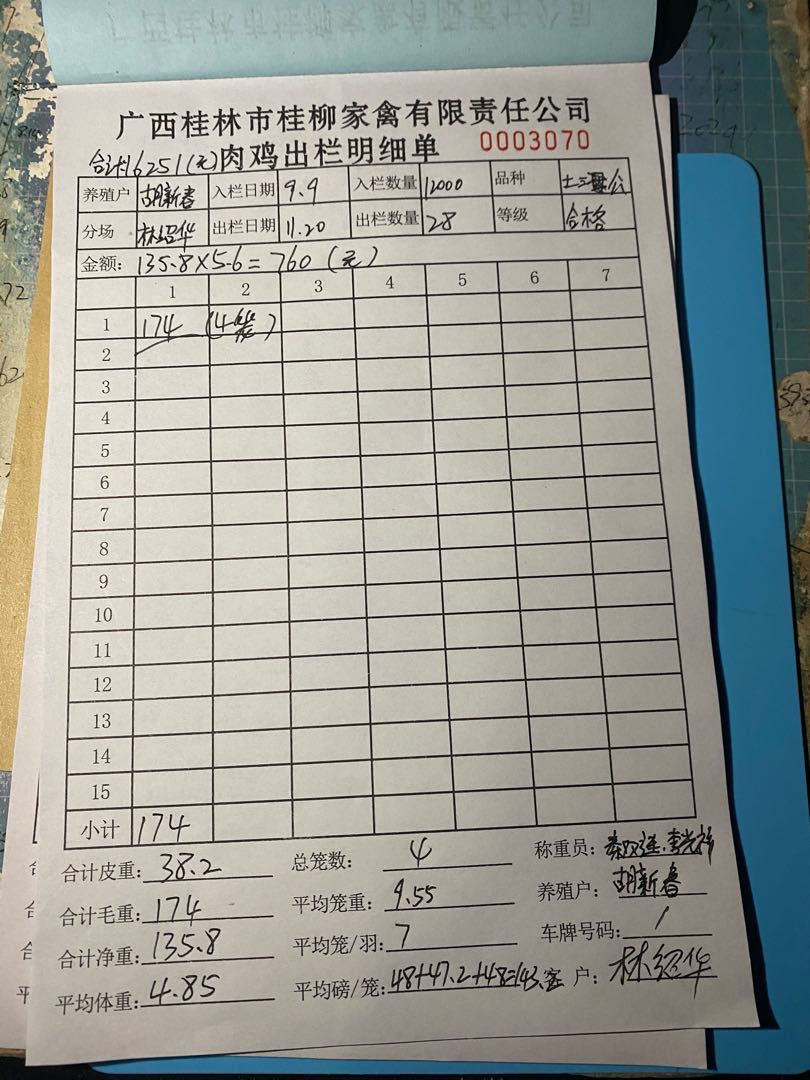 广西桂林市桂柳家禽有限责任公司
合计16251(元) 肉鸡出栏明细单 0003070
养殖户 胡新春 入栏日期 9.9 入栏数量 12000 品种 土
分场 林绍华 出栏日期 11.20 出栏数量 28 等级 合格
金额: 135.8×5.6=760(元)
1 2 3 4 5 6 7
1 174 (4笼)
2
3
4
5
6
7
8
9
10
11
12
13
14
15
小计 174
合计皮重: 38.2 总笼数: 4 称重员:
合计毛重: 174 平均笼重: 9.55 养殖户: 胡新春
合计净重: 135.8 平均笼/羽: 7 车牌号码: /
平均体重: 4.85 平均磅/笼: 48+47.2+48=143. 客户: 林绍华